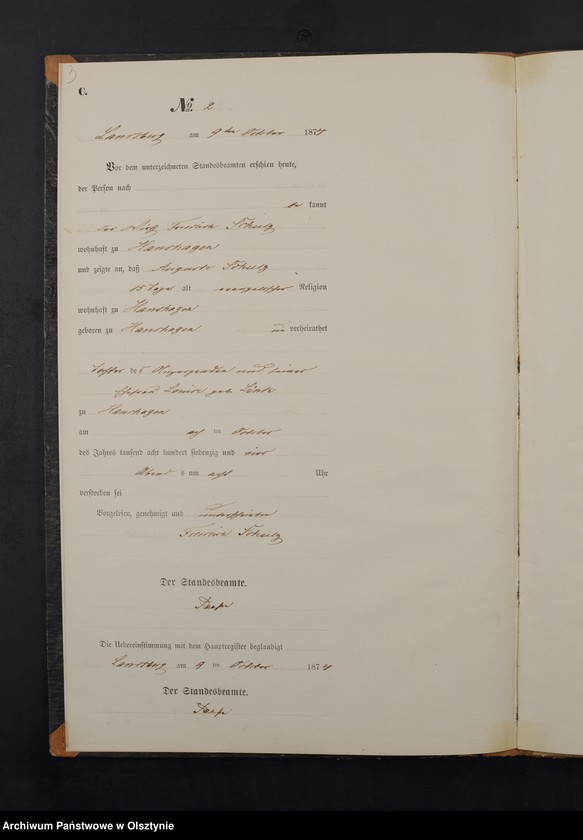 3
C.
No. 2
Landsberg am 9ten October 1874
Vor dem unterzeichneten Standesbeamten erschien heute,
der Person nach
be kannt
der Wirth Friedrich Schulz
wohnhaft zu Hanshagen
und zeigte an, daß Auguste Schulz
15 Tage alt evangelischer Religion
wohnhaft zu Hanshagen
geboren zu Hanshagen un verheirathet
Tochter des und seiner
Ehefrau Louise geb. Link
zu Hanshagen
am ten October
des Jahres tausend acht hundert siebenzig und vier
Abend s um acht Uhr
verstorben sei
Vorgelesen, genehmigt und unterschrieben
Friedrich Schulz
Der Standesbeamte.
Die Uebereinstimmung mit dem Hauptregister beglaubigt
Landsberg am 9 ten October 1874
Der Standesbeamte.
Archiwum Państwowe w Olsztynie